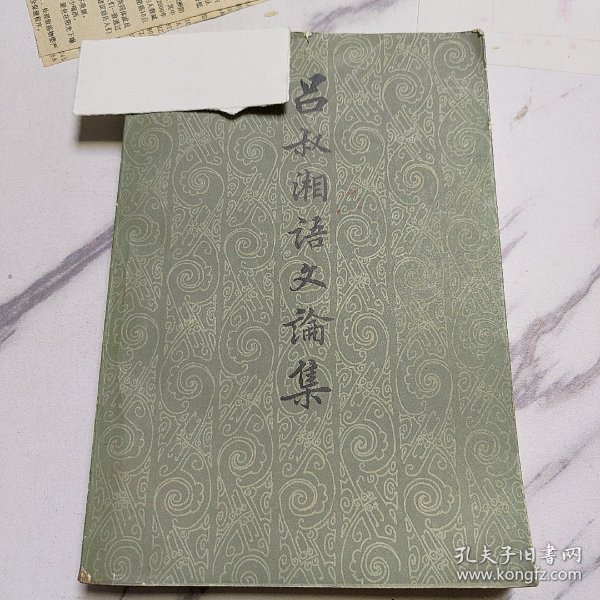 吕叔湘語文論集
孔夫子旧书网
www.kongfz.com